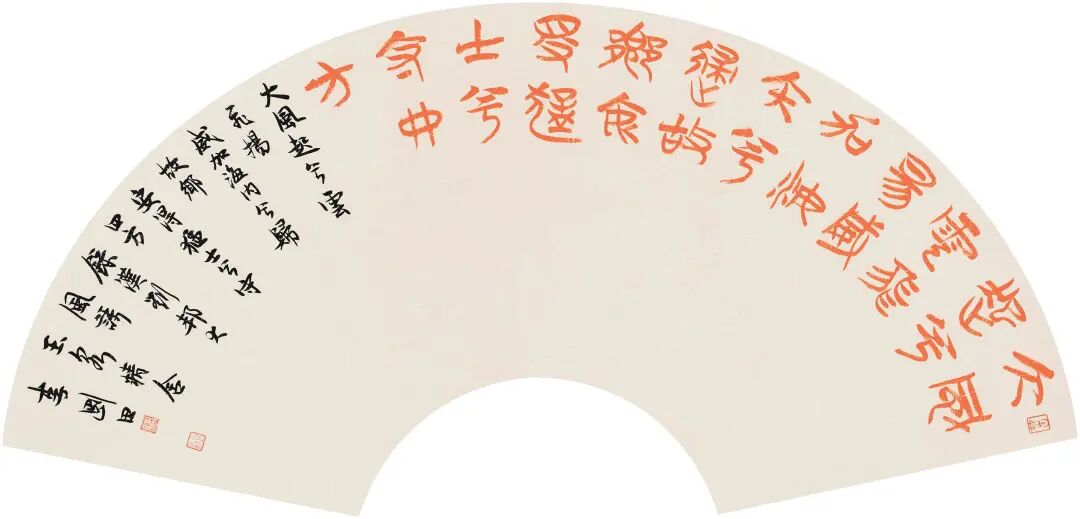 大風
起兮
雲飛
昜威
加海
内兮
歸故
鄉安
得猛
士兮
守四
方
大風起兮雲
飛揚
威加海内兮歸
故鄉
安得猛士兮守
四方
錄漢劉邦大
風詩
玉泉精舍
李剛田